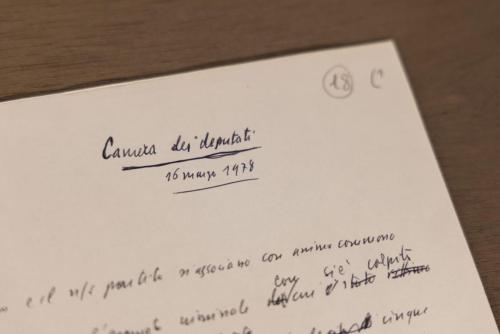 18 C
Camera dei deputati
16 marzo 1978
e il n/s partito si associano con animo commosso
criminale con cui si è colpita
cinque